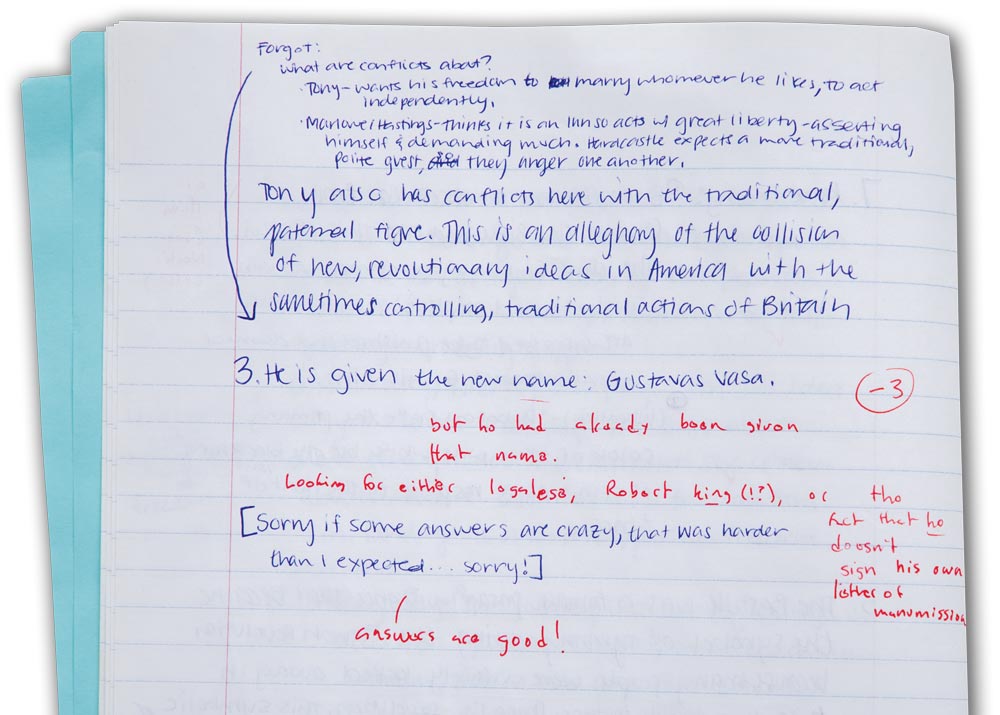 Forgot:
what are conflicts about?
· Tony - wants his freedom to marry whomever he likes, to act
independently.
· Marlowe/Hastings - thinks it is an Inn so acts w/ great liberty - asserting
himself & demanding much. Hardcastle expects a more traditional,
polite guest, they anger one another.
Tony also has conflicts here with the traditional,
paternal figure. This is an alleghory of the collision
of new, revolutionary ideas in America with the
sometimes controlling, traditional actions of Britain
3. He is given the new name: Gustavas Vasa.
-3
but he had already been given
that name.
Looking for either legalese, Robert King (!?), or the
fact that he
doesn't
sign his own
letter of
manumission
[Sorry if some answers are crazy, that was harder
than I expected... sorry!]
answers are good!